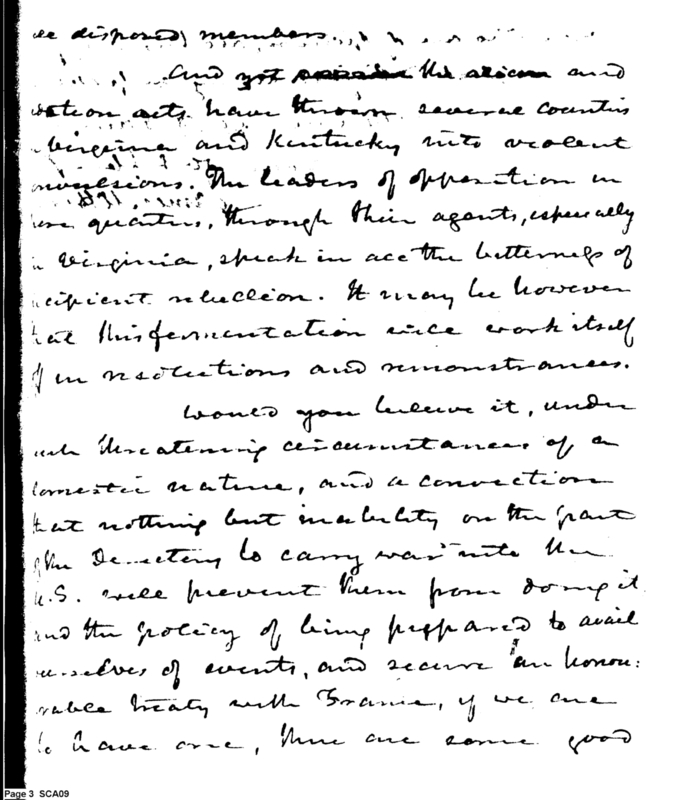 disposed members.
And yet the alien and
acts have thrown several counties
Virginia and Kentucky into violent
convulsions. The leaders of opposition in
quarters, through their agents, especially
Virginia, speak in all the bitterness of
incipient rebellion. It may be however
that this fermentation will work itself
off in resolutions and remonstrances.
Would you believe it, under
such threatening circumstances of a
domestic nature, and a conviction
that nothing but inability on the part
of the Directory to carry war into the
U.S. will prevent them from doing it
and the policy of being prepared to avail
ourselves of events, and secure an honou:
rable treaty with France, if we are
to have one, there are some good
Page 3 SCA09